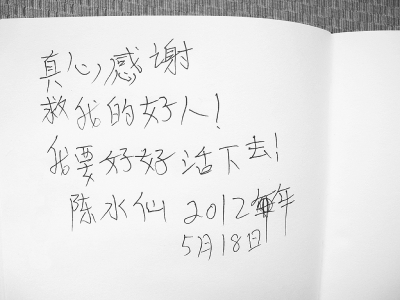 真心感谢
救我的好人!
我要好好活下去!
陈水仙 2012年
5月18日